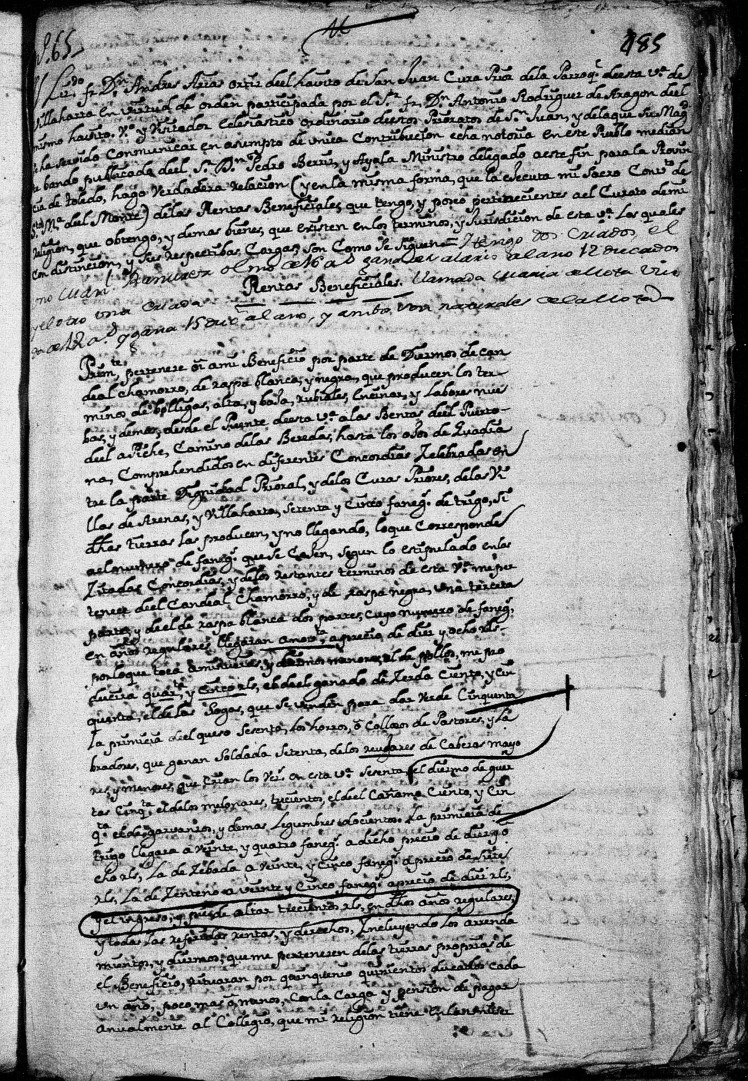 485
Lic.do fr. Dn. Andres Arias Ortiz del havito de San Juan Cura Prior dela Parroq. de esta v.a de
Villaharta en virtud de orden participada por el S.r fr. Dn. Antonio Rodriguez de Aragon del
mismo havito, V.o y Visitador eclesiastico ordinario de estos Prioratos de Sn. Juan, y dela que Su Mag.d
se ha servido Conmunicar en asumpto de unica Contribucion echa notoria en este Pueblo median
te bando publicada del S. Dn. Pedro Berriz, y Ayala Ministro delegado a este fin para la Provin
cia de Toledo, hago Verdadera relacion (y en la misma forma, que la executa mi Sacro Conv.to de
S.ta M.a del Monte) de las Rentas Beneficiales, que tengo, y poseo pertenecientes a el Curato de mi
religion, que obtengo, y demas bienes, que existen en los terminos, y Jurisdicion de esta v.a Los quales
con distincion, y sus respectibas Cargas, son como se siguen = tengo dos criados, el
de 16 a.s gana de salario al año 12 ducados
y el otro una criada llamada Maria
y gana 15 duc.s al año, y ambos son naturales de
Rentas Beneficiales.
Prim.te, pertenece a mi Beneficio por parte de Diezmos de can
deal chamorro, de raspa blanca, y negra, que producen los ter
minos de alta, y baja, rubiales, encinar, y Labores nue
bas, y demas, desde el Puente de esta v.a a las Bentas del Puerto
del apiche, Camino de las Beredas, hasta los ojos de Guadia
na, Comprehendidos en diferentes Concordias Zelebradas en
tre la parte Dignidad Prioral, y de los Curas Priores, de las Vi
llas de Arenas, y Villaharta, Setenta y Cinco faneg.s de trigo, si
dhas tierras las producen, y no llegando, lo que corresponde
a el numero de faneg.s que se cojen, segun lo estipulado en las
Zitadas Concordias, y de los restantes terminos de esta v.a me per
tenece del Candeal, Chamorro, y de raspa negra, una tercera
parte, y de el de raspa blanca dos partes, cuyo numero de faneg.s
en años regulares, llegaran a precio de diez y ocho r.s
por lo que toca a y diezmos menores, el de pollos, me pro
ducira quar.ta y Cinco r.s, el del ganado de Zerda Ciento, y Cin
quenta, el de las Sogas, que se venden para dar Verde Cinquenta
La primicia del queso Sesenta, los horros, o Collazos de Pastores, y La
bradores, que ganan Soldada Setenta, de los de Cabezas mayo
res, y menores, que crian los Vez.s en esta v.a Sesenta, el diezmo de
Cinq.ta, el de los melonares, trecientos, el del Cañamo Ciento, y Cin
q.ta el de garvanzos, y demas Legumbres, docientos. La primicia de
trigo llegara a veinte, y quatro faneg.s a dicho precio de diez y o
cho r.s, La de Zebada a veinte, y Cinco faneg.s a precio de siete
r.s, La de Zenteno a veinte y Cinco faneg.s a precio de diez r.s,
y el ingreso, y pie de altar trecientos r.s, en dhos años regulares,
y todas las referidas rentas, y derechos, Incluyendo los arrenda
mientos, y diezmos, que me pertenecen de las tierras proprias de
el Beneficio, rituaran por quinquenio quinientos ducados cada
un año, poco mas, o menos, con la Carga y pension de pagar
anualmente al Collegio, que mi religion tiene